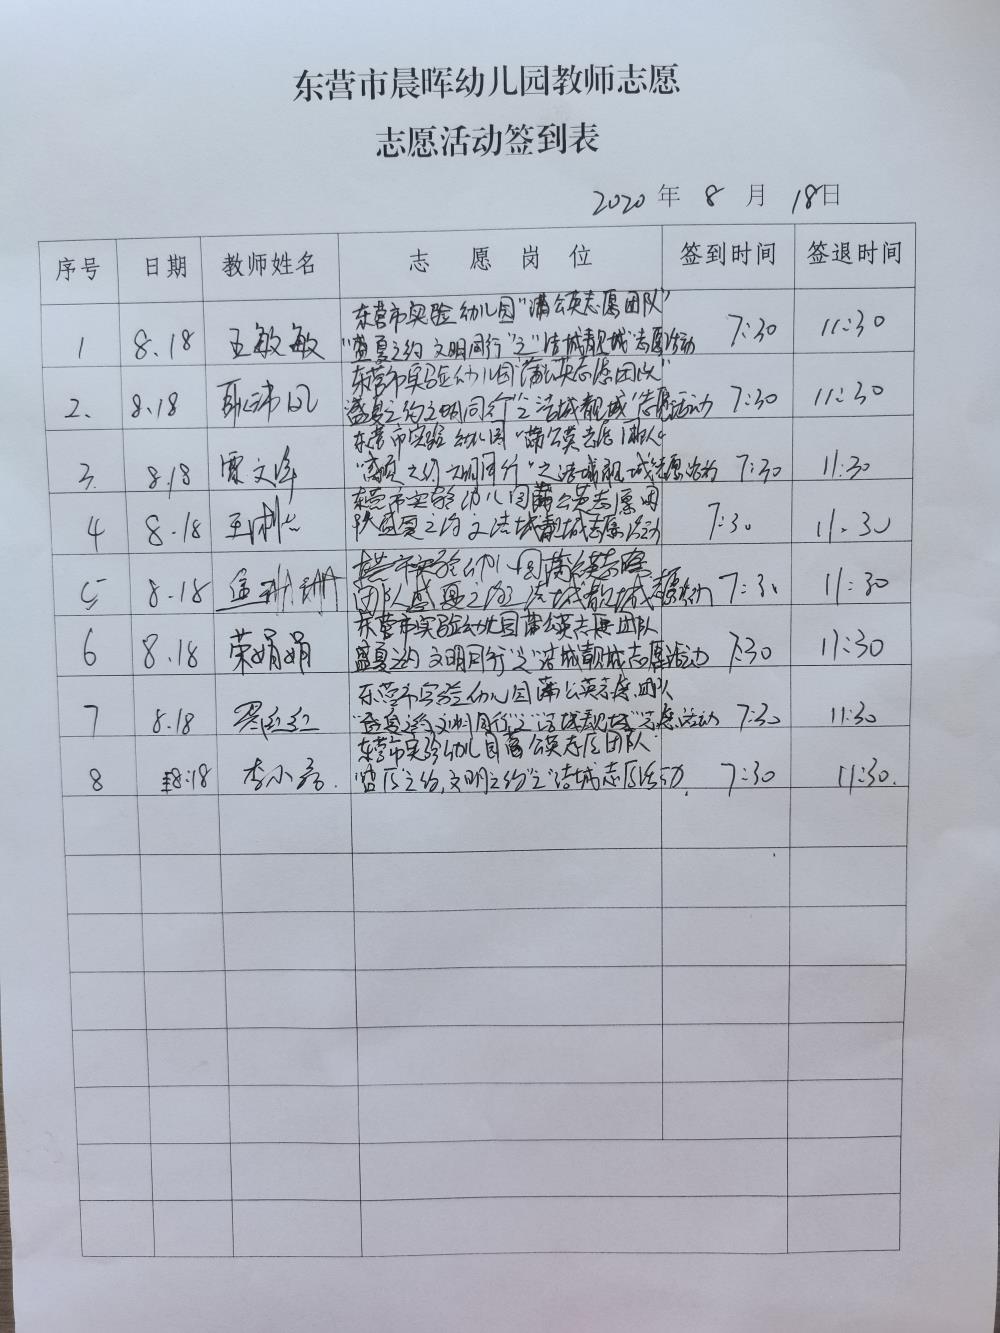 东营市晨晖幼儿园教师志愿
志愿活动签到表
2020 年 8 月 18日
序号 日期 教师姓名 志 愿 岗 位 签到时间 签退时间
东营市实验幼儿园"蒲公英志愿团队"
1 8.18 王敏敏 "盛夏之约 文明同行"之"洁城靓城"志愿活动 7:30 11:30
东营市实验幼儿园"蒲公英志愿团队"
2. 8.18 盛夏之约文明同行"之"洁城靓城"志愿活动 7:30 11:30
东营市实验幼儿园"蒲公英志愿团队
3. 8.18 "盛夏之约 文明同行"之洁城靓城志愿活动 7:30 11:30
东营市实验幼儿园蒲公英志愿团
4 8.18 队盛夏之约之洁城靓城志愿活动 7:30 11:30
东营市实验幼儿园蒲公英志愿
5 8.18 团队盛夏之约之洁城靓城志愿活动 7:30 11:30
东营市实验幼儿园蒲公英志愿团队
6 8.18 荣娟娟 盛夏之约 文明同行"之"洁城靓城志愿活动 7:30 11:30
东营市实验幼儿园蒲公英志愿团队
7 8.18 "盛夏之约文明同行"之"洁城靓城"志愿活动 7:30 11:30
东营市实验幼儿园蒲公英志愿团队
8 8:18 李小 "盛夏之约,文明之约"之"洁城志愿活动. 7:30 11:30.